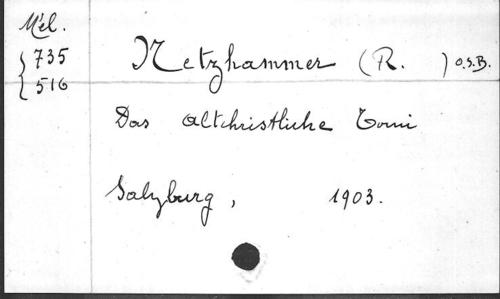 Mél.
735
516
Netzhammer (R. ) O.S.B.
Das altchristliche Tomi
Salzburg, 1903.